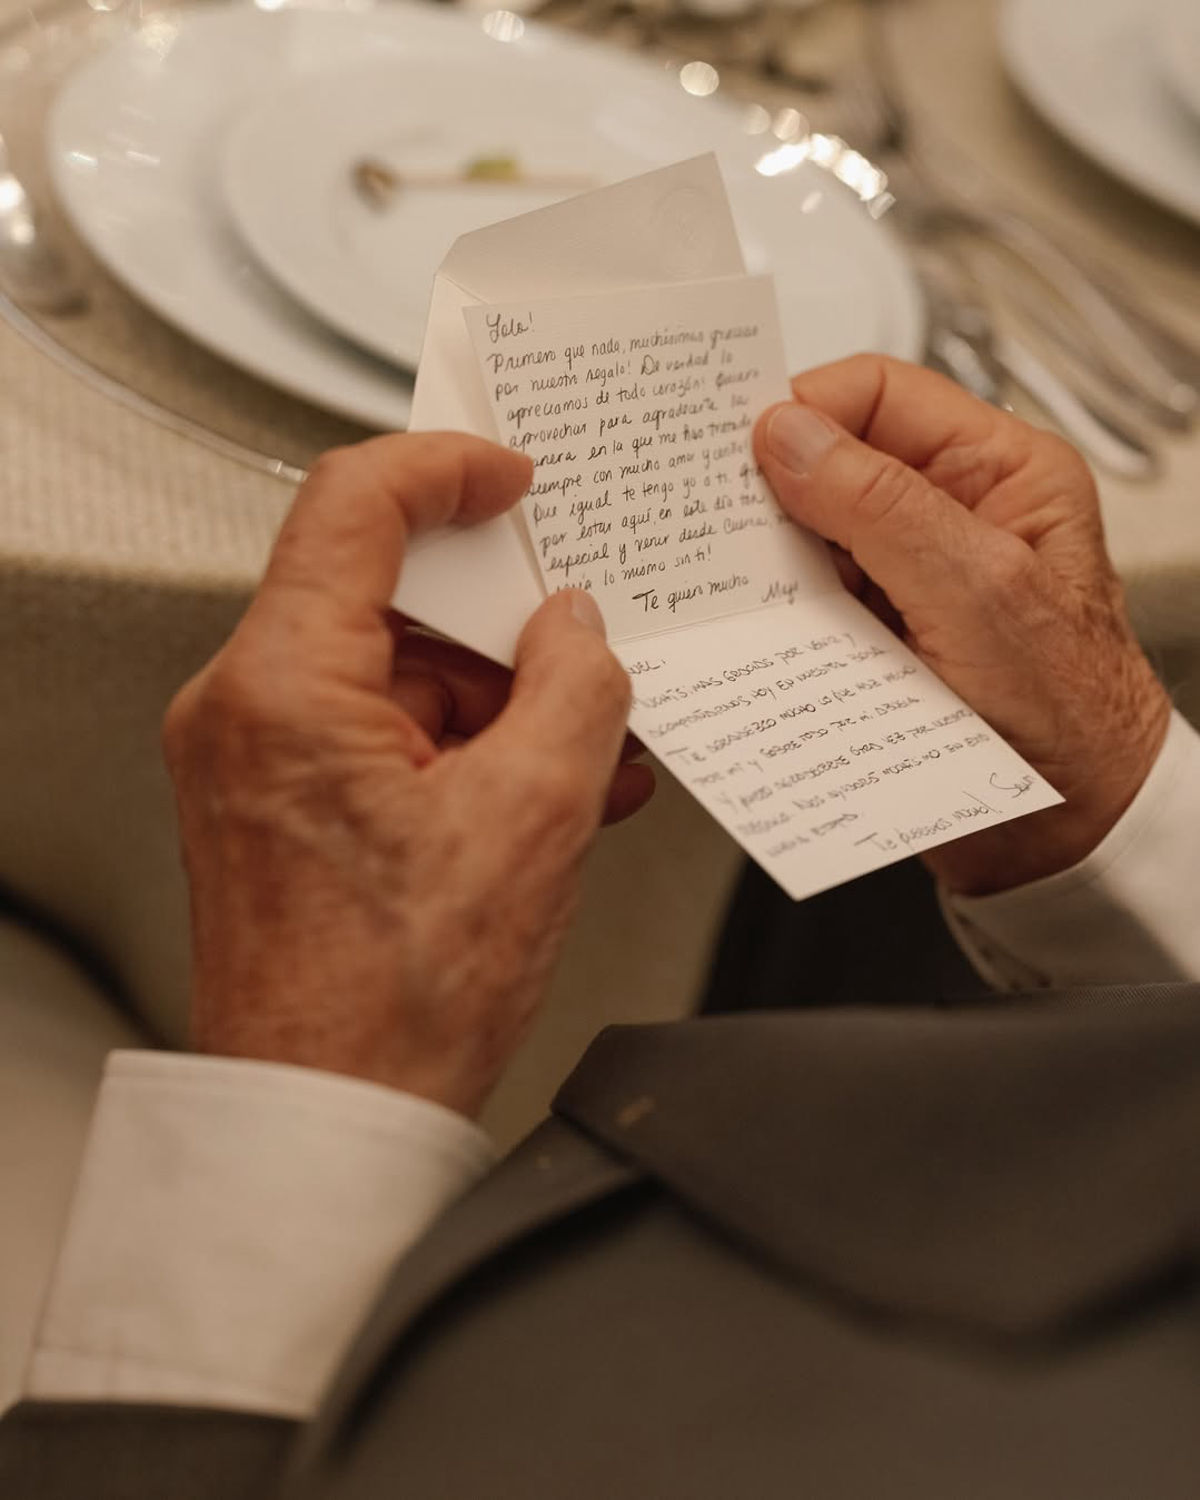 Lolo!
Primero que nada, muchísimas gracias
por nuestro regalo! De verdad lo
apreciamos de todo corazón! Quiero
aprovechar para agradecerte la
anera en la que me has tratado
siempre con mucho amor y cariño!
Que igual te tengo yo a ti. Gra
por estar aquí, en este día tan
especial y venir desde Cuenca,
ía lo mismo sin ti!
Te quiero mucho Majo
UEL!
MUCHÍSIMAS GRACIAS POR VENIR Y
ACOMPAÑARNOS HOY EN NUESTRA BODA.
TE AGRADEZCO MUCHO LO QUE HAS HECHO
POR MÍ Y SOBRE TODO POR MI ABUELA.
Y PUEDO AGRADECERTE OTRA VEZ POR NUESTRO
REGALO. NOS AYUDARÁ MUCHÍSIMO EN
NUEVA ETAPA.
TE QUEREMOS MUCHO!